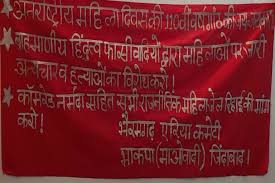 अंतर्राष्ट्रीय महिला दिवस की 110वीं वर्षगांठ की
ब्राह्मणीय हिंदुत्व फासीवादियों द्वारा महिलाओं पर जारी
अत्याचार व हत्याओं का विरोध करो!
कॉमरेड नर्मदा सहित सभी राजनीतिक महिला रिहाई की मांग
करो!
भैरमगढ़ एरिया कमेटी
भाकपा (माओवादी) जिंदाबाद!